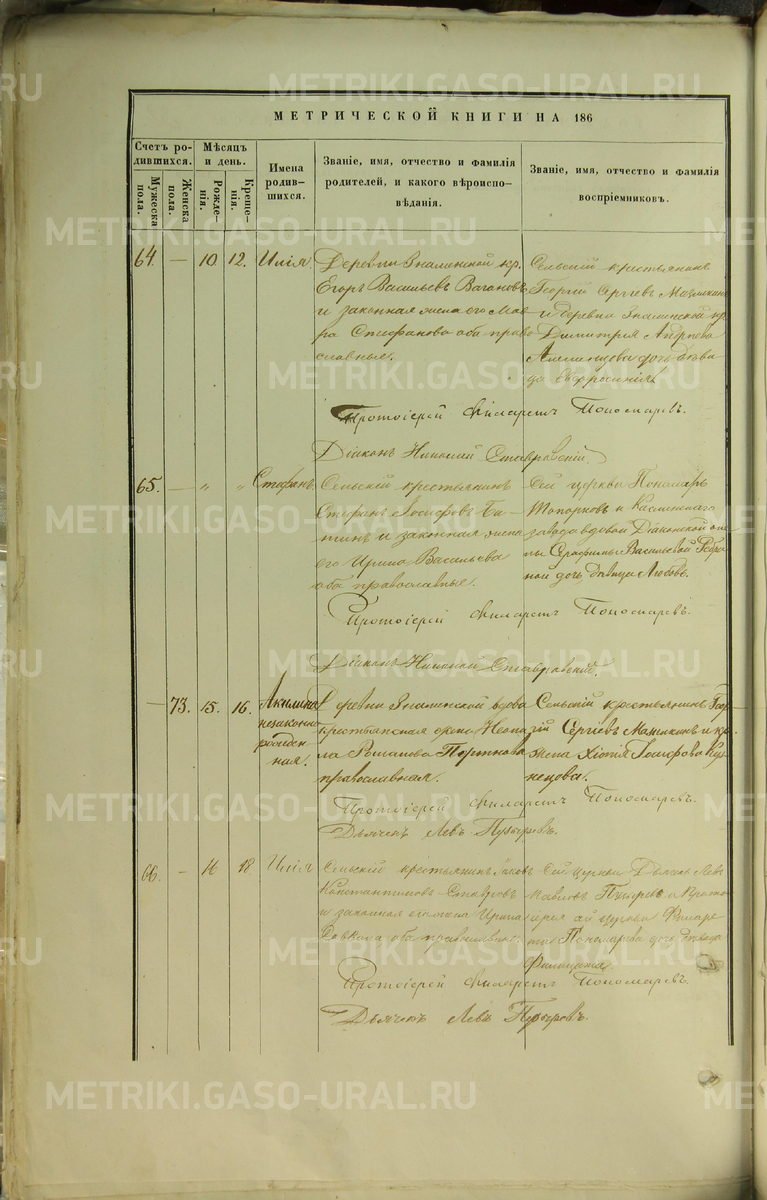 METRIKI.GASO-URAL.RU
МЕТРИЧЕСКОЙ КНИГИ НА 186
Счетъ ро-
дившихся.
Мужеска
пола.
Женска
пола.
Мѣсяцъ
и день.
Рожде-
нія.
Креще-
нія.
Имена
родив-
шихся.
Званіе, имя, отчество и фамилія
родителей, и какого вѣроиспо-
вѣданія.
Званіе, имя, отчество и фамилія
воспріемниковъ.
64. — 10 12. Илія.
Деревни Знаменской кр.
Егоръ Васильевъ Вагановъ
и законная жена его Мав-
ра Стефанова оба право
славные.
Сельскій крестьянинъ
Георгій Сергіевъ
и деревни Знаменской кр.
Димитрія Андреева
дочь дѣви
ца Евфросинія.
Протоіерей Филаретъ Пономаревъ.
Діаконъ Николай Ставровскій.
65. — „ „ Стефанъ.
Сельскій крестьянинъ
Стефанъ Іосифовъ
и законная жена
его Ирина Васильева
оба православные.
Сей церкви Пономарь
Топорковъ и Каслинскаго
завода вдовой Діаконской
Серафимы Васильевой
дочь дѣвица Любовь.
Протоіерей Филаретъ Пономаревъ.
Діаконъ Николай Ставровскій.
— 73. 15. 16. Акилина
незаконно
рожден
ная.
Деревни Знаменской вдова
крестьянская жена
Романова Портнова
православная.
Сельскій крестьянинъ Геор
гій Сергіевъ и кр.
жена Хіонія Іосифова Куз
нецова.
Протоіерей Филаретъ Пономаревъ.
Дьячекъ Левъ Пузыревъ.
66. — 16 18 Илія
Сельскій крестьянинъ Іаковъ
Константиновъ
и законная его жена Ирина
оба православные.
Сей церкви Дьячекъ Левъ
Павловъ Пузыревъ и Прото
іерея сей церкви Филаре
та Пономарева дочь дѣвица
Фелицата.
Протоіерей Филаретъ Пономаревъ.
Дьячекъ Левъ Пузыревъ.